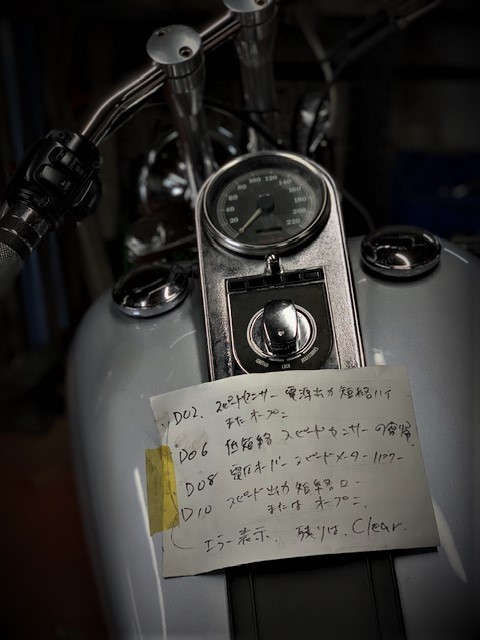 20 40 60 80 100 120 140 160 180 200 220
D02. スピードセンサー 電源出力短絡ハイ
またオープン
D06 低短絡 スピードセンサーの
D08 電圧オーバー スピードメーターパワー
D10 スピード出力短絡ロー
または オープン.
エラー表示. 残りは. Clear.